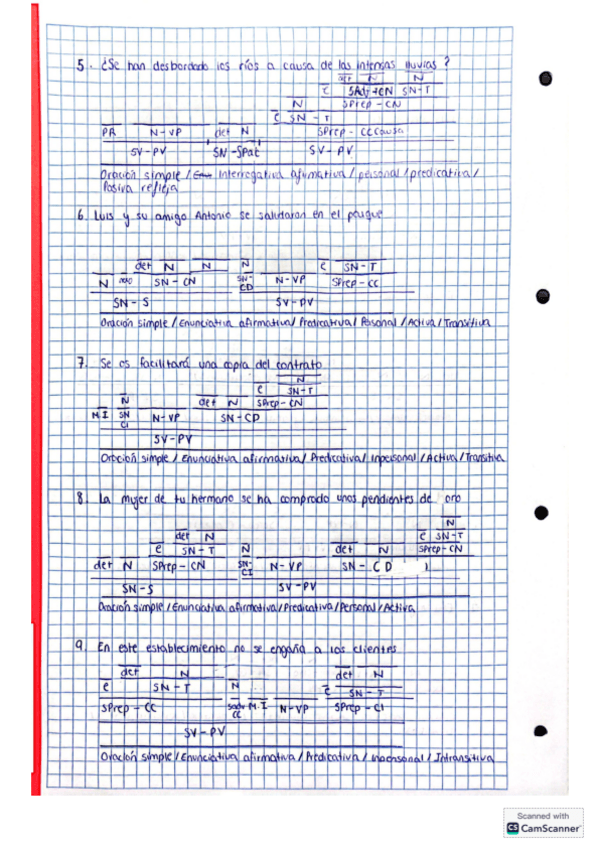 5. ¿Se han desbordado los ríos a causa de las intensas lluvias?
det N N
E SAdj+CN SN-T
N SPrep-CN
E SN-T
PR N-VP det N SPrep-CCCausa
SV-PV SN-SPac SV-PV
Oración simple / Interrogativa afirmativa / personal / predicativa /
Pasiva refleja
6. Luis y su amigo Antonio se saludaron en el parque
det N N N E SN-T
N nexo SN-CN SN-CD N-VP SPrep-CC
SN-S SV-PV
Oración simple / Enunciativa afirmativa / Predicativa / Personal / Activa / Transitiva
7. Se os facilitará una copia del contrato
N
E SN-T
N det N SPrep-CN
M.I SN CI N-VP SN-CD
SV-PV
Oración simple / Enunciativa afirmativa / Predicativa / Impersonal / Activa / Transitiva
8. La mujer de tu hermano se ha comprado unos pendientes de oro
N
det N E SN-T
E SN-T N det N SPrep-CN
det N SPrep-CN SN-CI N-VP SN-CD
SN-S SV-PV
Oración simple / Enunciativa afirmativa / Predicativa / Personal / Activa
9. En este establecimiento no se engaña a los clientes
det N det N
E SN-T N E SN-T
SPrep-CC Sadv CC M.I N-VP SPrep-CI
SV-PV
Oración simple / Enunciativa afirmativa / Predicativa / Impersonal / Intransitiva
Scanned with
CS CamScanner